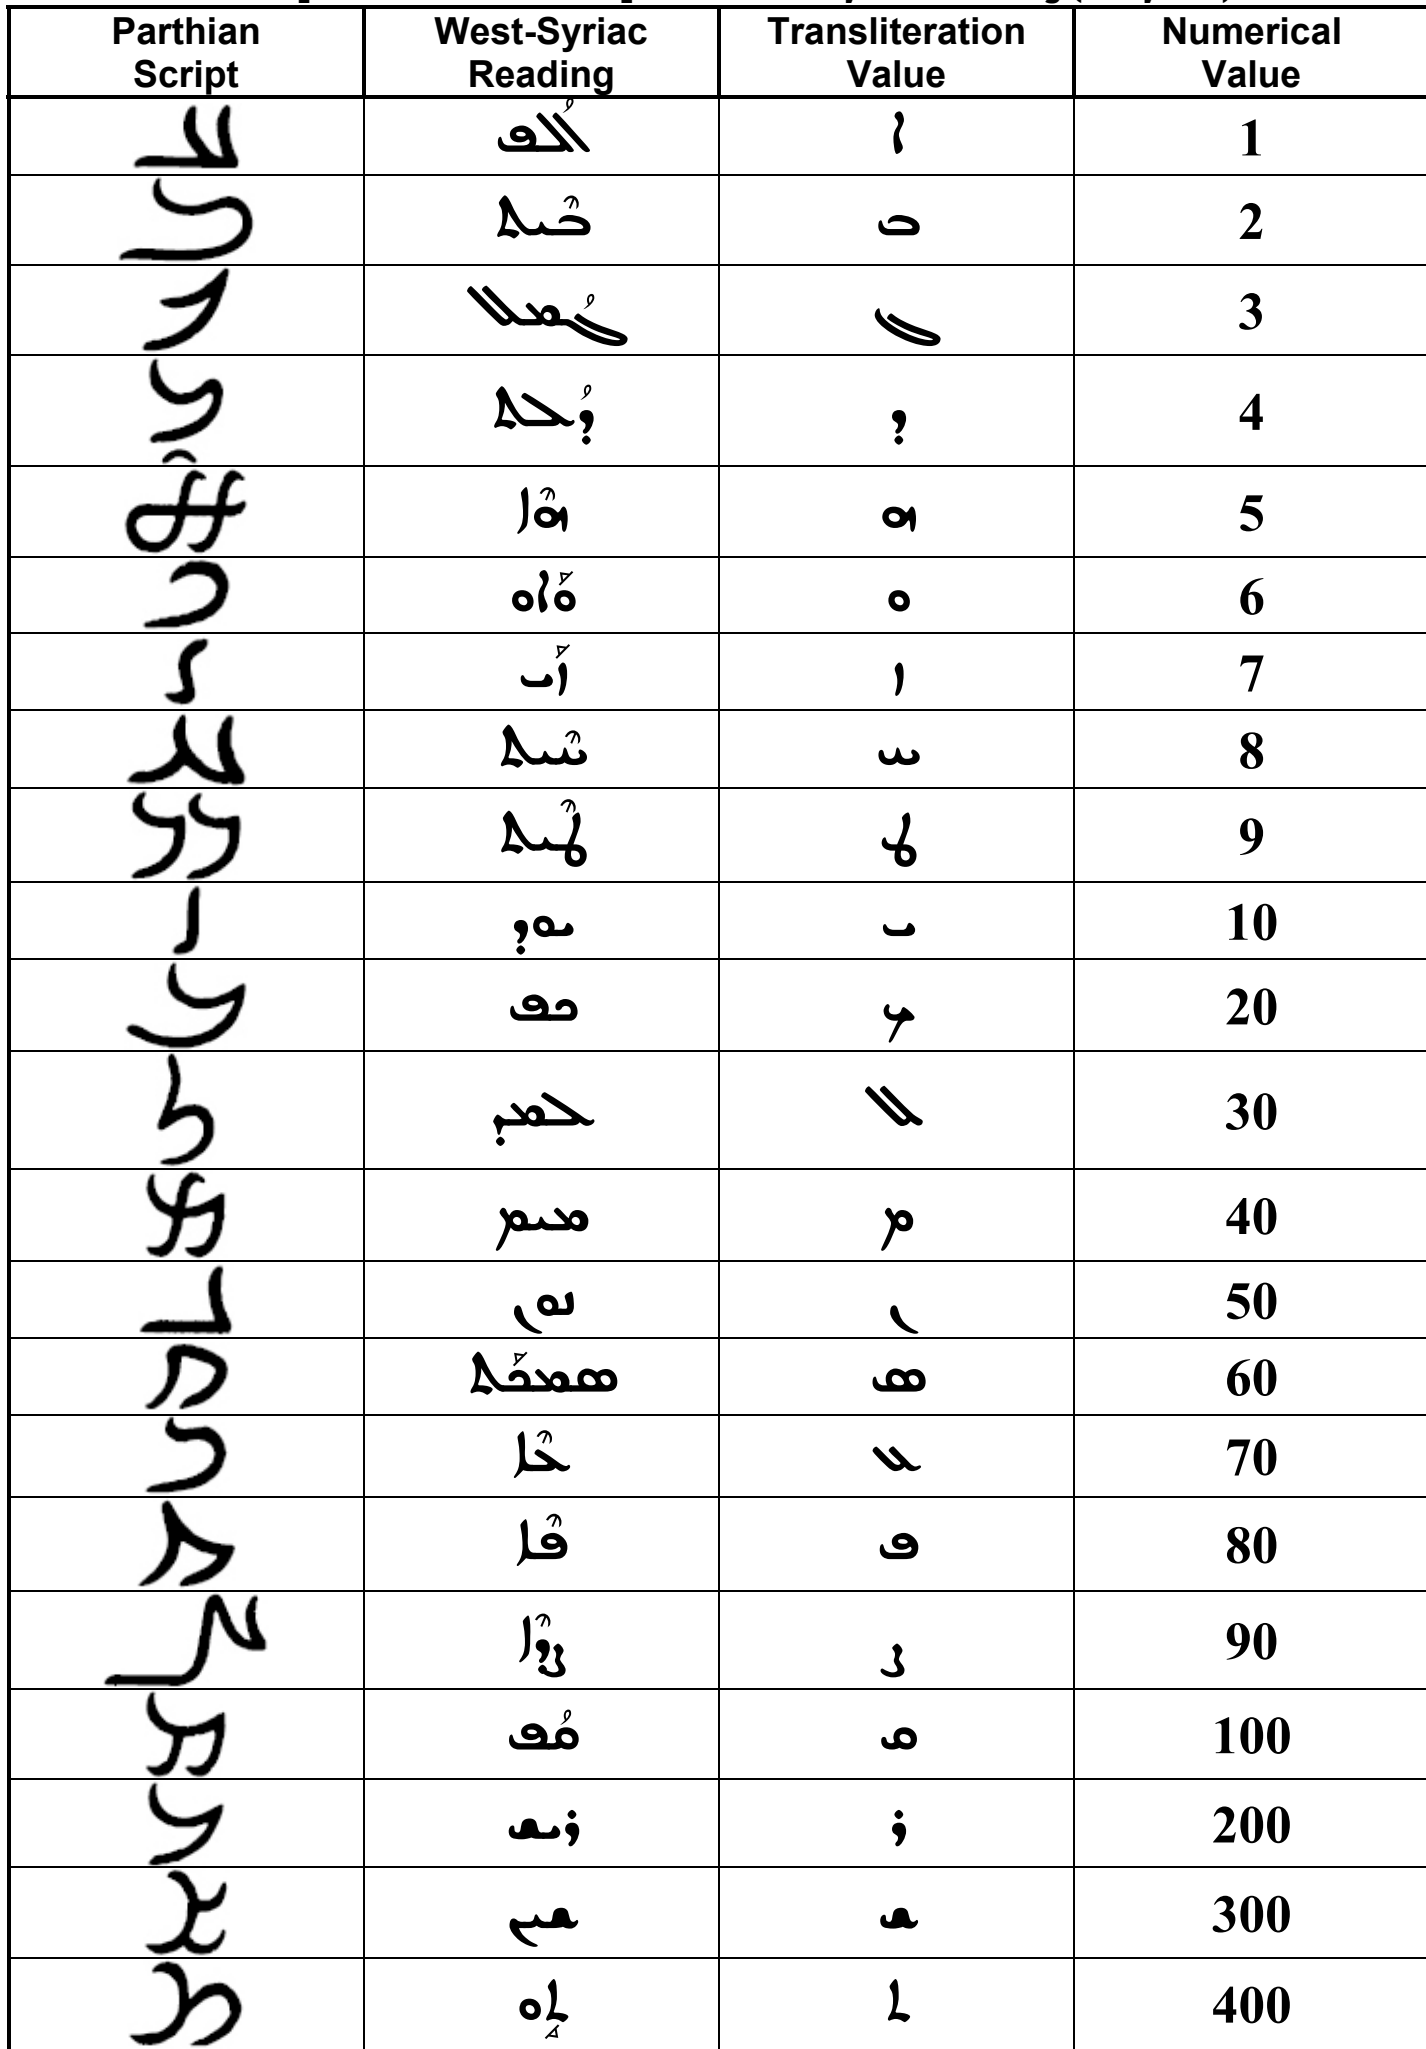 Parthian Script West-Syriac Reading Transliteration Value Numerical Value
𐭀 ܐܳܠܦ ܐ 1
𐭁 ܒܶܝܬ ܒ 2
𐭂 ܓܳܡܠ ܓ 3
𐭃 ܕܳܠܬ ܕ 4
𐭄 ܗܶܐ ܗ 5
𐭅 ܘܰܐܘ ܘ 6
𐭆 ܙܰܝ ܙ 7
𐭇 ܚܶܝܬ ܚ 8
𐭈 ܛܶܝܬ ܛ 9
𐭉 ܝܘܕ ܝ 10
𐭊 ܟܦ ܟ 20
𐭋 ܠܡܕ ܠ 30
𐭌 ܡܝܡ ܡ 40
𐭍 ܢܘܢ ܢ 50
𐭎 ܣܡܟܰܬ ܣ 60
𐭏 ܥܶܐ ܥ 70
𐭐 ܦܶܐ ܦ 80
𐭑 ܨܕܶܐ ܨ 90
𐭒 ܩܳܦ ܩ 100
𐭓 ܪܝܫ ܪ 200
𐭔 ܫܝܢ ܫ 300
𐭕 ܬܱܘ ܬ 400